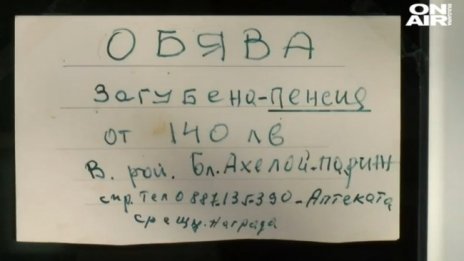 ON
AIR
ОБЯВА
Загубена-пенсия
от 140 лв
В. рай. Бл. Ахелой-париж
спр. Тел 0887.135390-Аптеката
срещу. награда